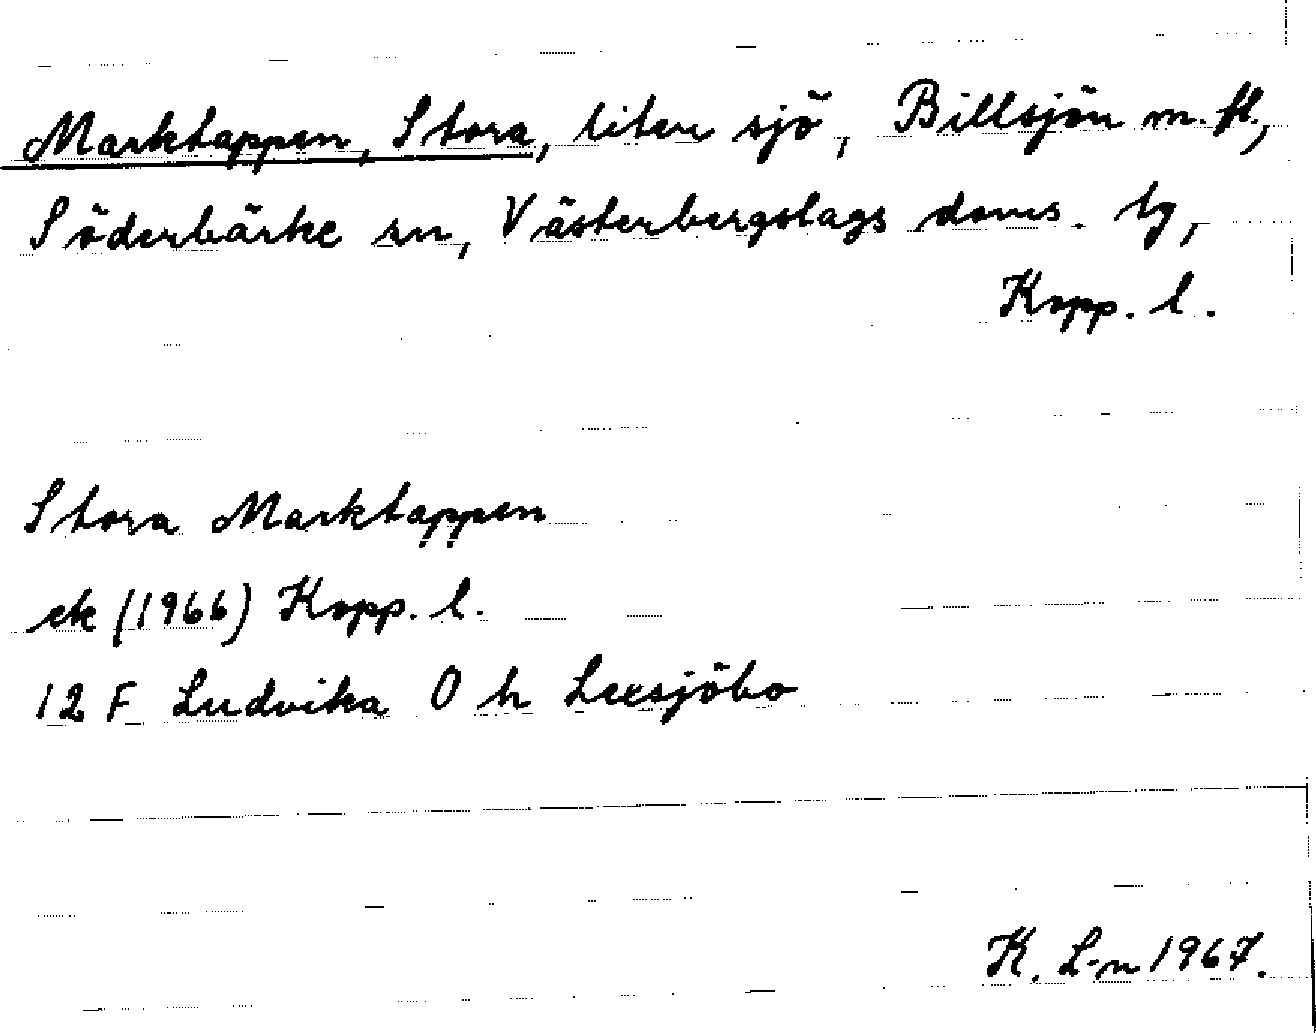 Marktappen, Stora, liten sjö, Billsjön m.fl.,
Söderbärke sn, Västerbergslags doms. tg,
Kopp. l.
Stora Marktappen
ek (1966) Kopp. l.
12 F Ludvika O h Leesjöbo
K. L-n 1967.